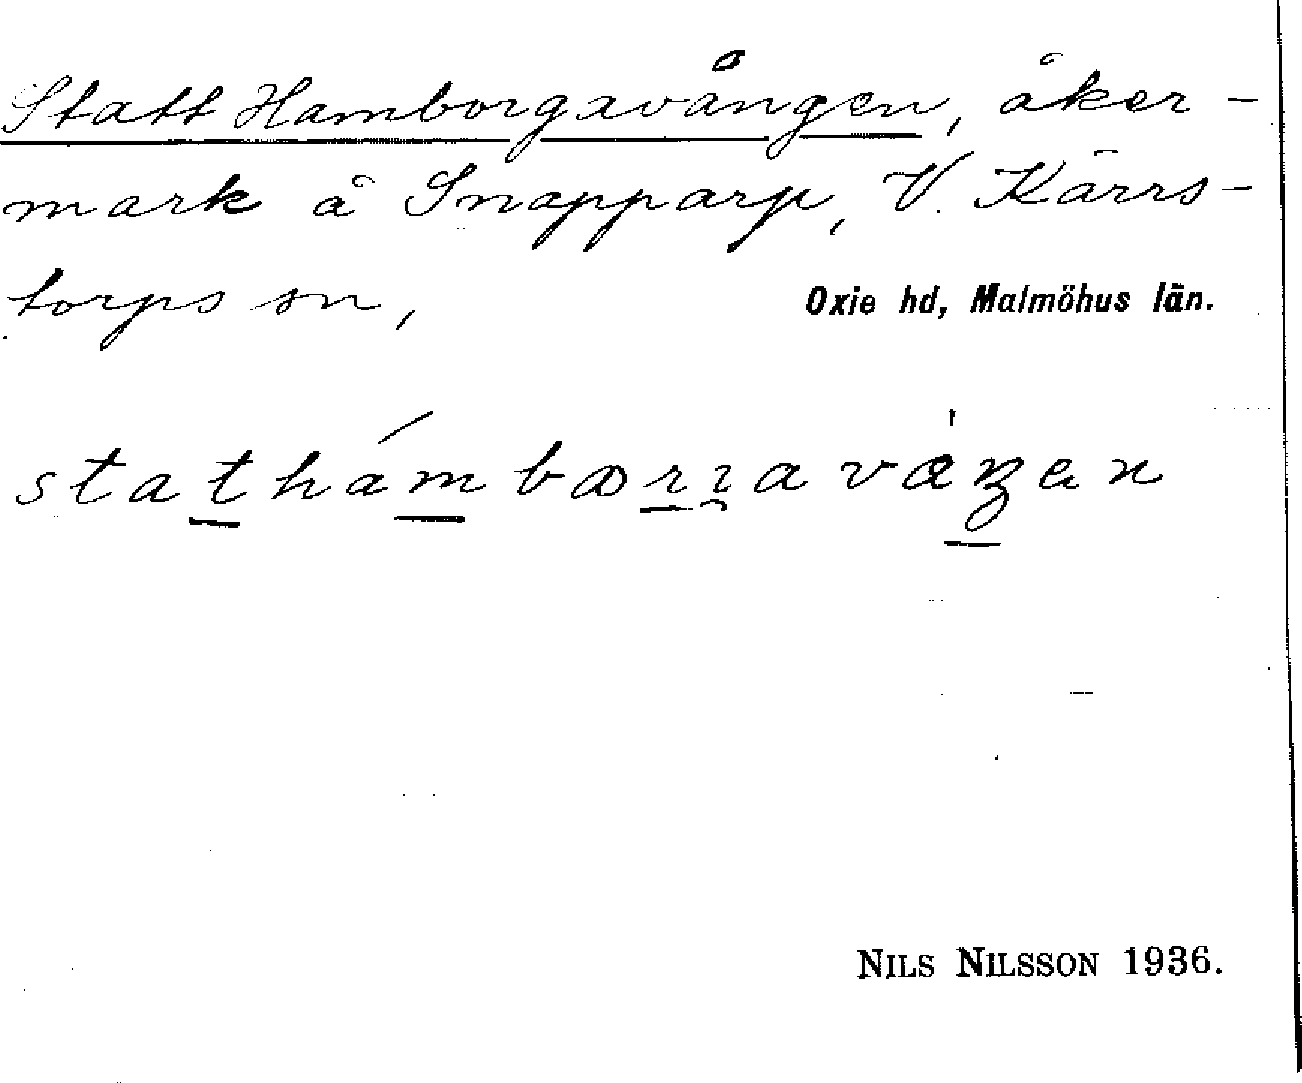 Statt Hamborgavången, åker-
mark å Snapparp, V. Kärrs-
torps sn, Oxie hd, Malmöhus län.
NILS NILSSON 1936.